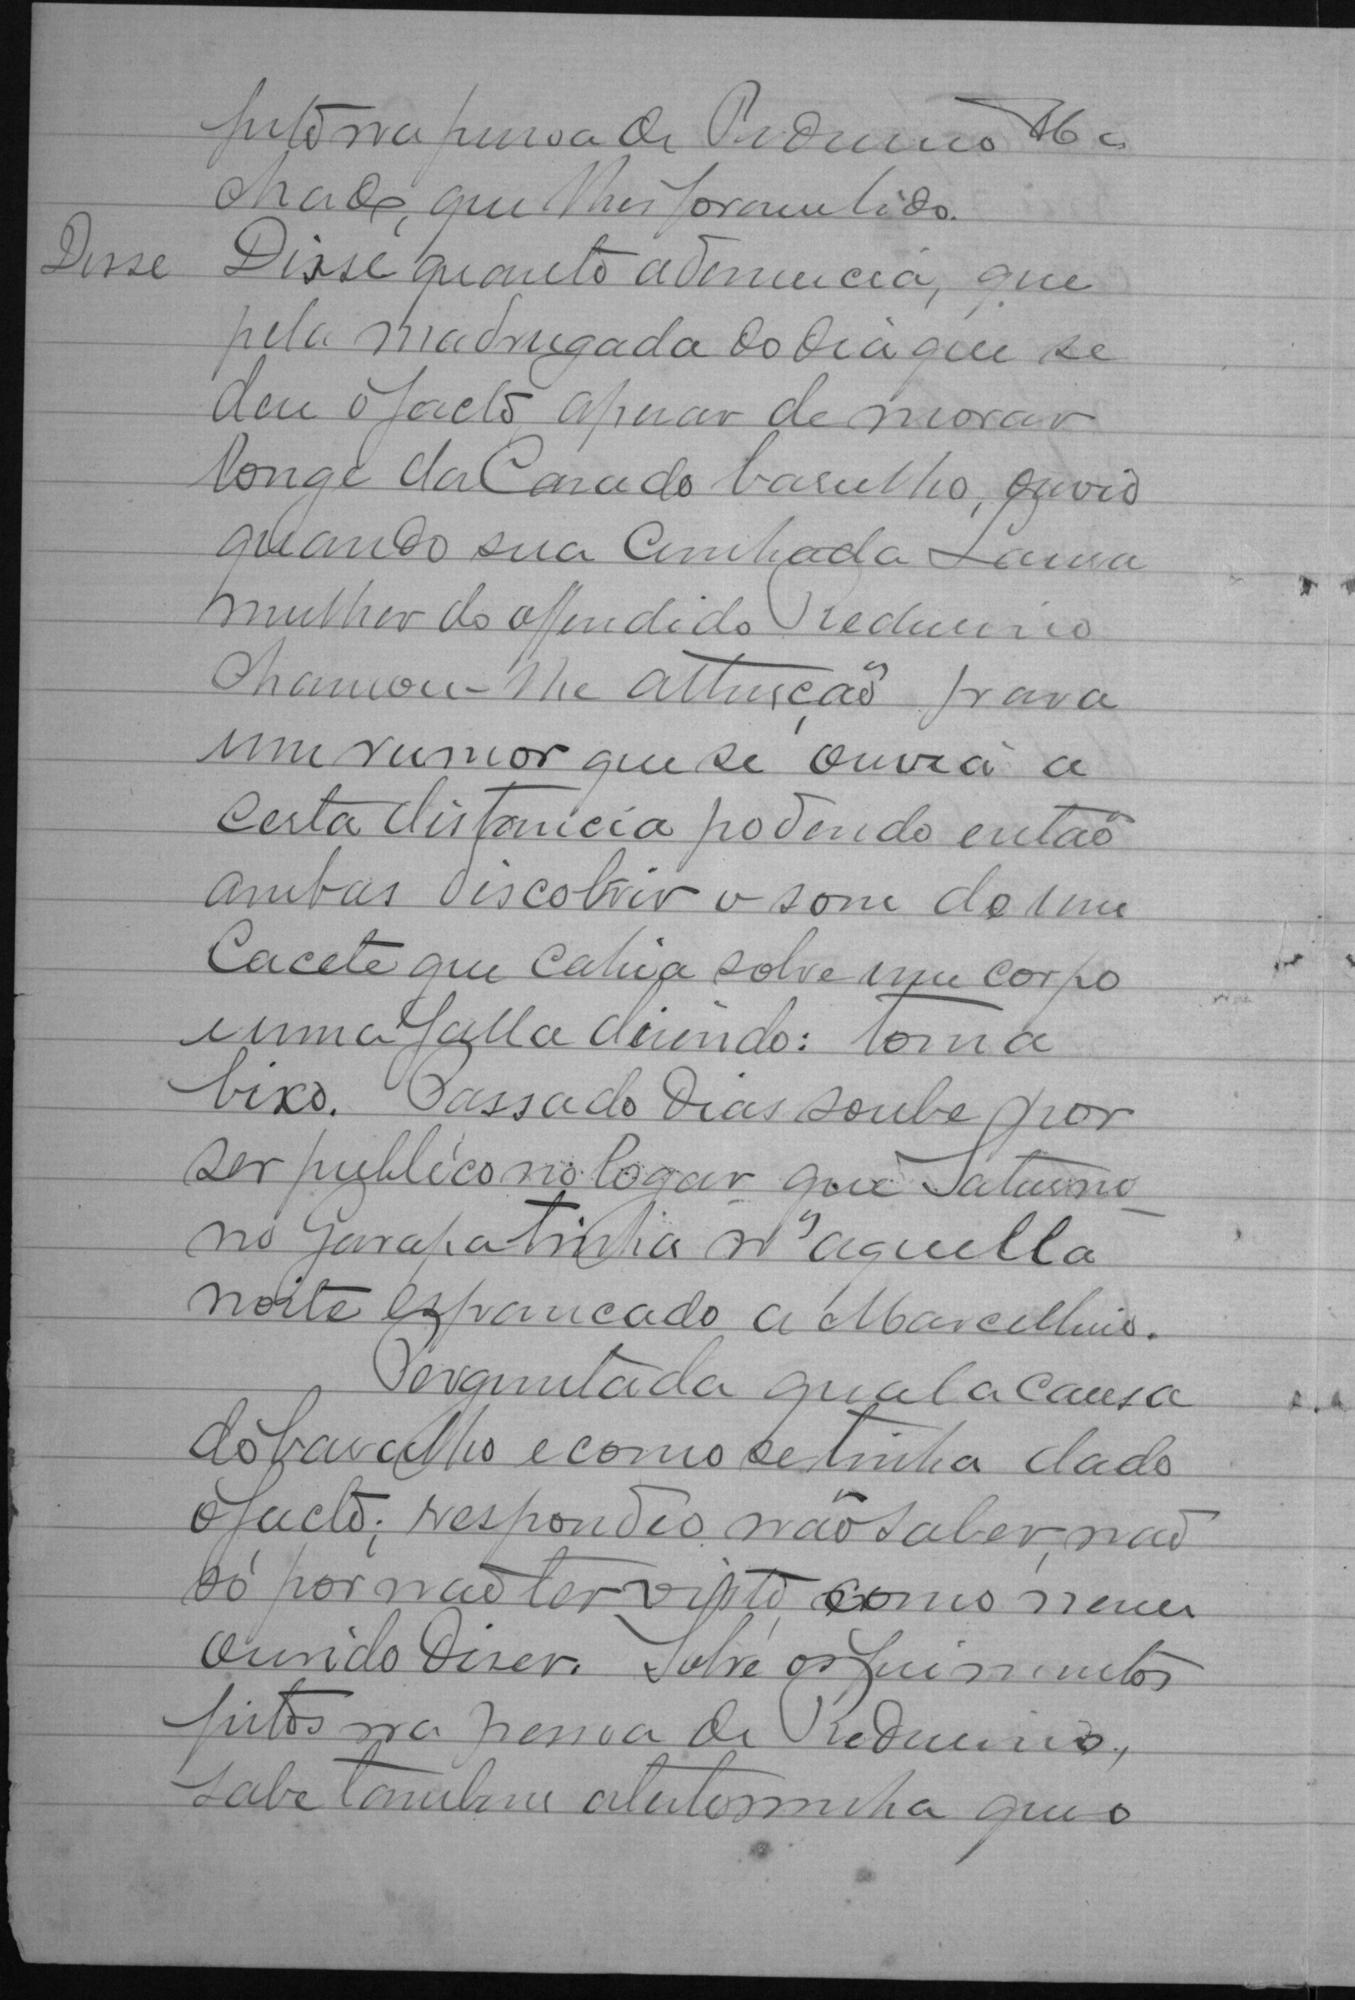 feito na pessoa de Reduzino Ma
chado, que lhes foram lido.
Disse Disse quanto a denuncia, que
pela madrugada do dia que se
deu o facto apesar de morar
longe da Casa do barulho, ouvio
quando sua Cunhada Laura
mulher do offendido Reduzino
chamou-lhe attenção para
um rumor que se ouvia a
certa distancia podendo então
ambas discobrir o som de um
Cacete que cahia sobre um corpo
e uma falla disendo: toma
bixo. Passado dias soube por
ser publico no logar que Saturno
no Garapatinha n'aquella
noite espancado a Marcellino.
Perguntada qual a causa
do barulho e como se tinha dado
o facto; respondeo não saber, não
só por não ter visto, como nem
ouvido diser. Sobre os ferimentos
feitos na pessoa de Reduzino,
sabe tambem a testemunha que o